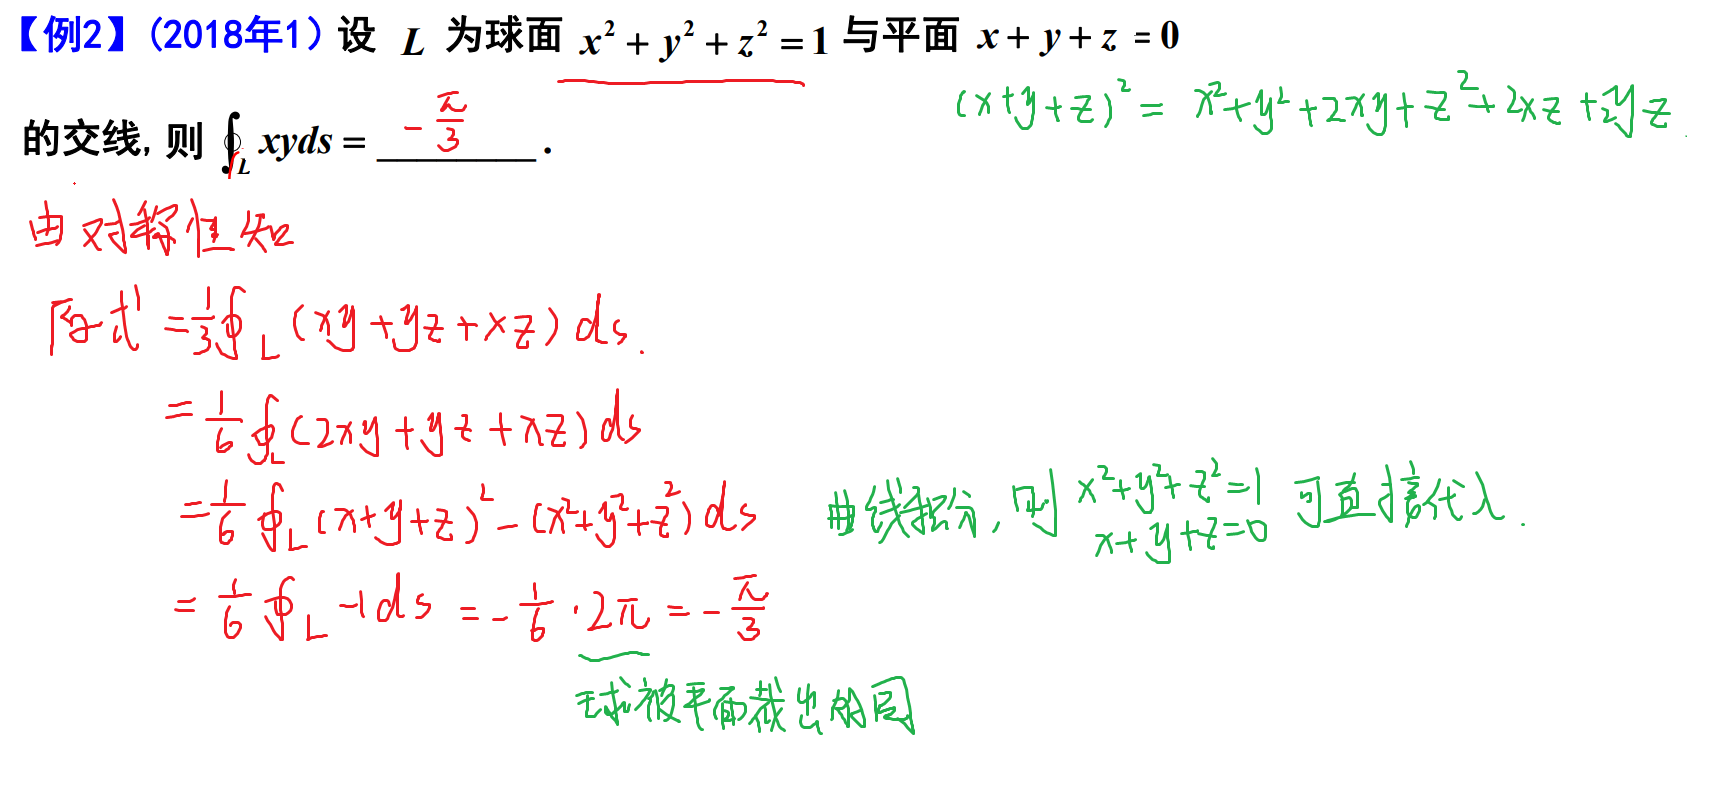 【例2】(2018年1) 设 L 为球面 x² + y² + z² = 1 与平面 x + y + z = 0
(x+y+z)² = x²+y²+2xy+z²+2xz+2yz
的交线, 则 ∮_L xyds = -π/3 .
由对称性知
原式 = 1/3 ∮_L (xy+yz+xz) ds.
= 1/6 ∮_L (2xy+yz+xz) ds
= 1/6 ∮_L (x+y+z)² - (x²+y²+z²) ds
曲线积分, 则 x²+y²+z²=1 x+y+z=0 可直接代入.
= 1/6 ∮_L -1 ds = -1/6 · 2π = -π/3
球被平面截出的圆